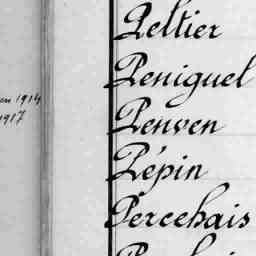 Peltier
Peniguel
en 1914
1917
Penven
Pépin
Percehais